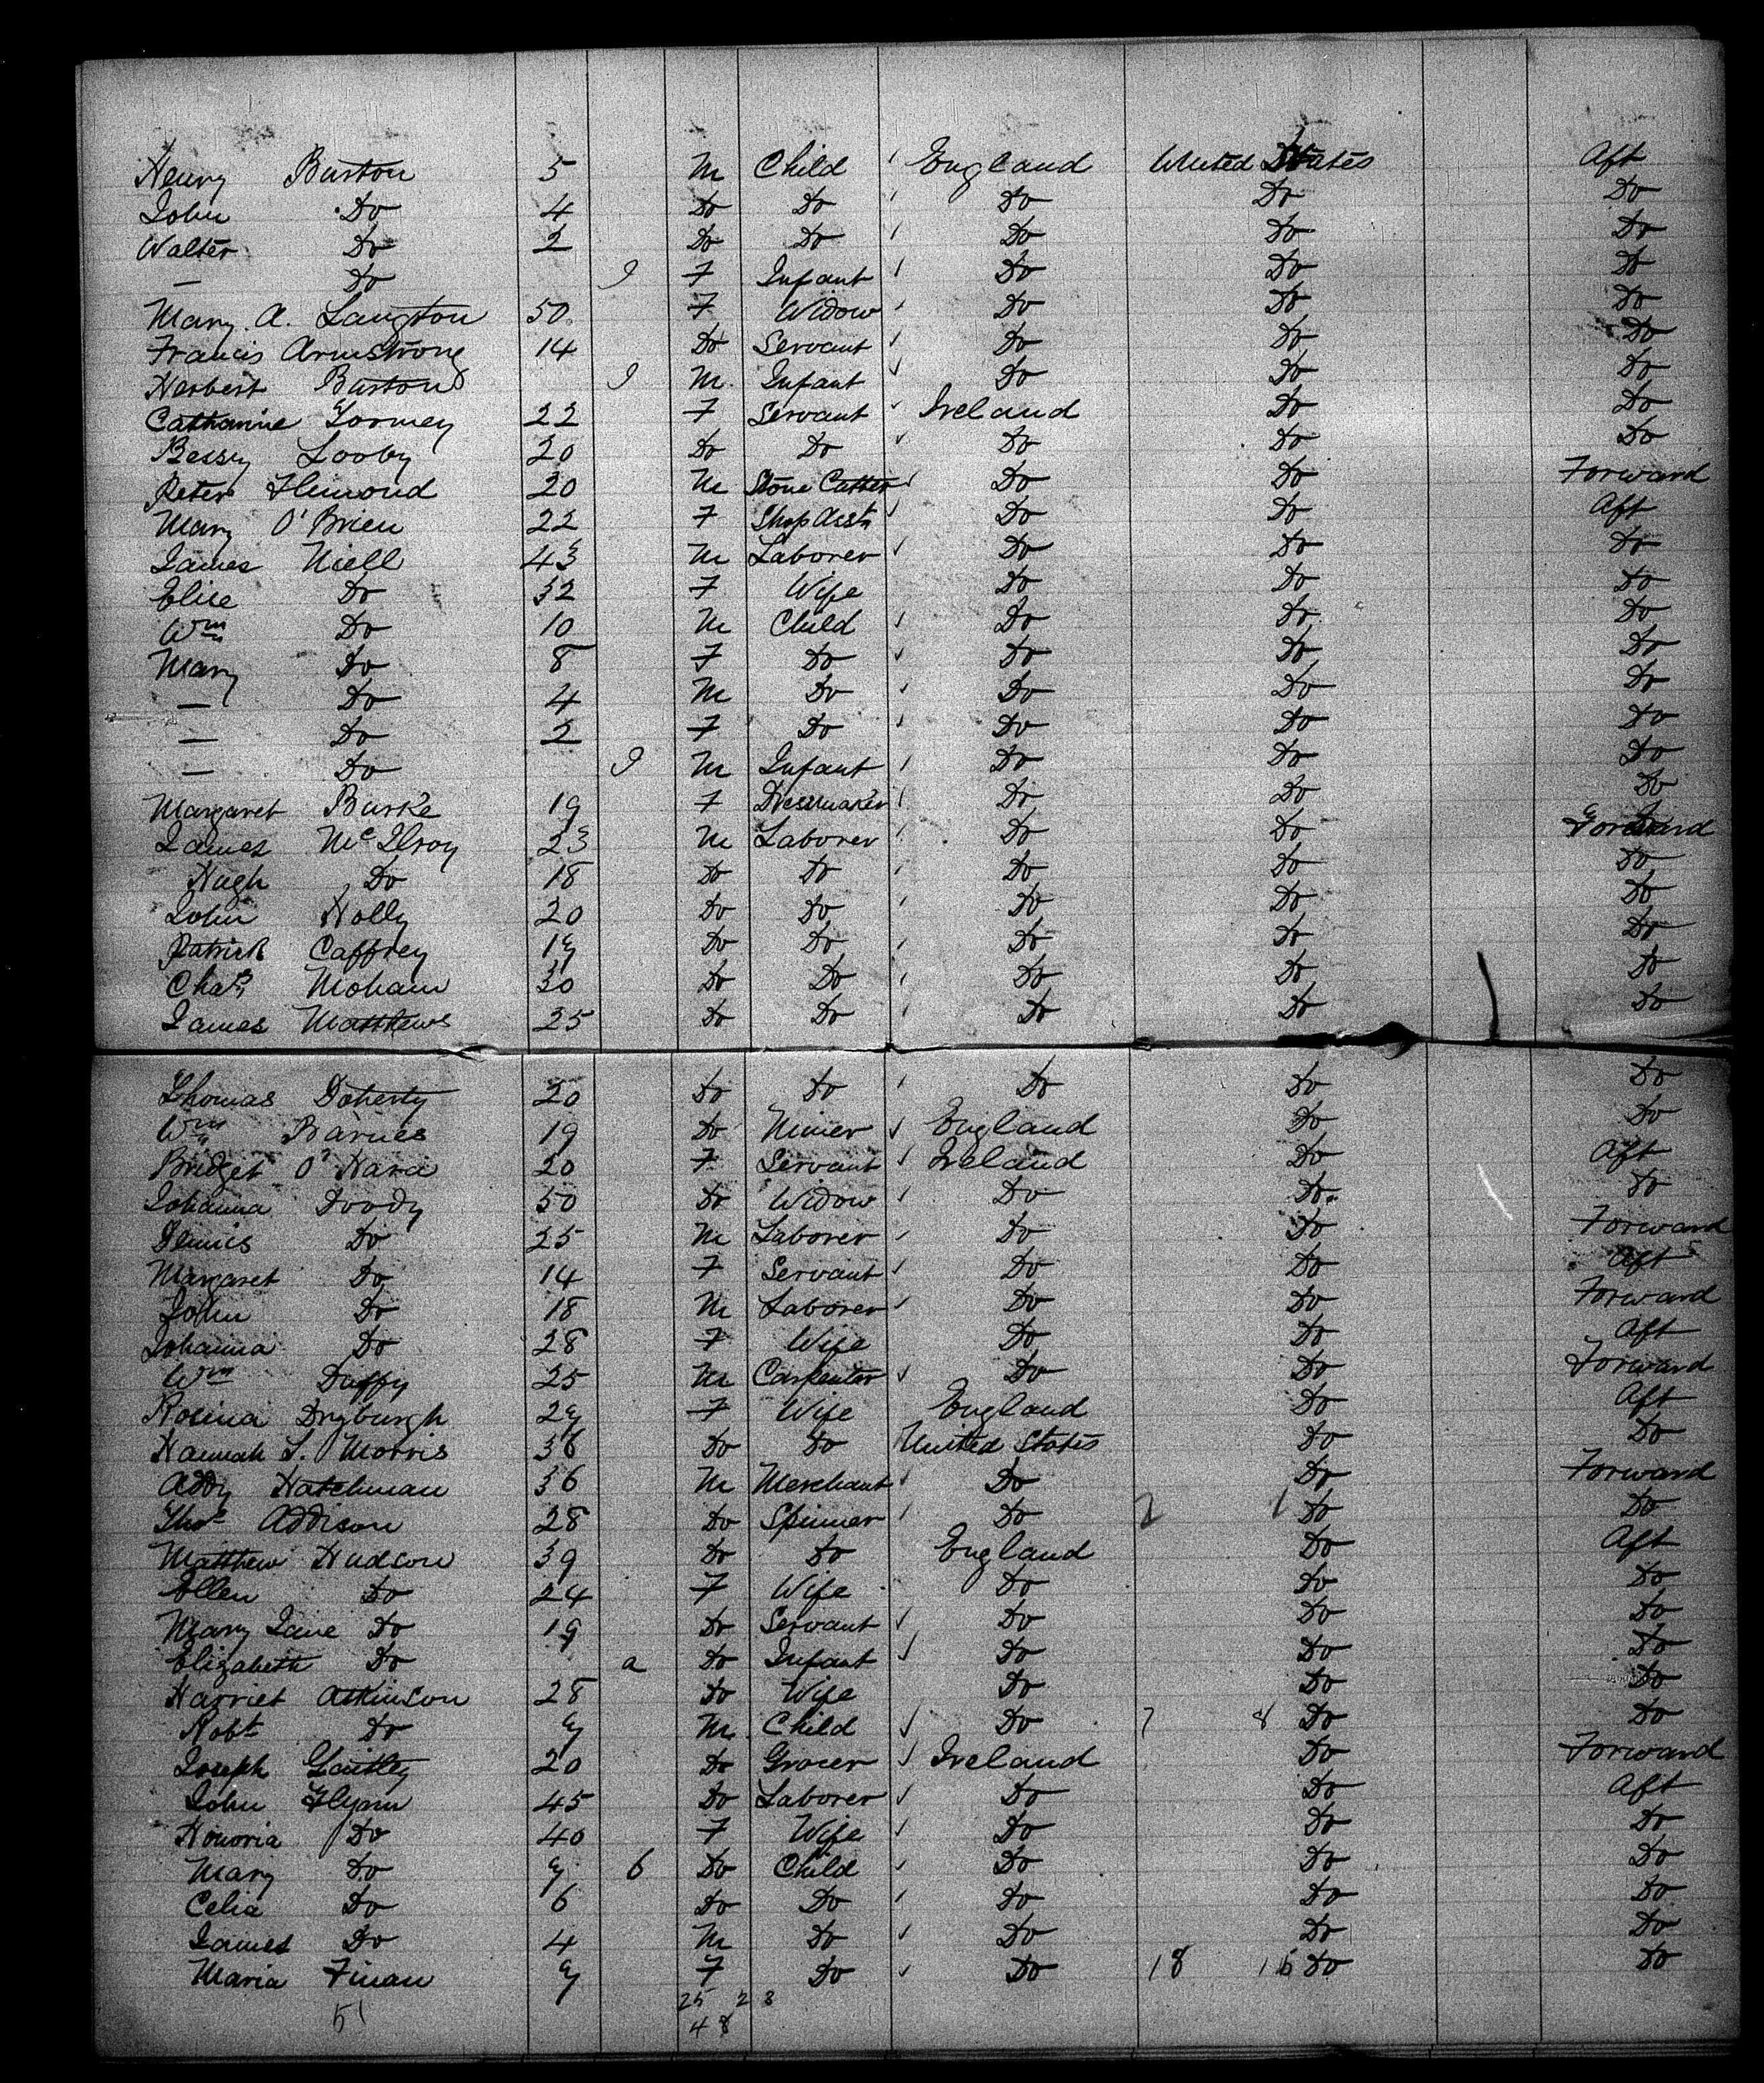 Henry Burton 5 M Child England United States Aft
John Do 4 Do Do Do Do Do
Walter Do 2 Do Do Do Do Do
— Do F Infant Do Do Do
Mary A. Langton 50 F Widow Do Do Do
Francis Armstrong 14 Do Servant Do Do Do
Herbert Burton M Infant Do Do Do
Catharine Tormey 22 F Servant Ireland Do Do
Bessy Looby 20 Do Do Do Do Do
Peter 20 M Stone Cutter Do Do Forward
Mary O'Brien 22 F Shop Asst Do Do Aft
James Niell 43 M Laborer Do Do Do
Elise Do 32 F Wife Do Do Do
Wm Do 10 M Child Do Do Do
Mary Do 8 F Do Do Do Do
— Do 4 M Do Do Do Do
— Do 2 F Do Do Do Do
— Do M Infant Do Do Do
Margaret Burke 19 F Dressmaker Do Do Do
James McIlroy 23 M Laborer Do Do Forward
Hugh Do 18 Do Do Do Do Do
John Holly 20 Do Do Do Do Do
Patrick Caffrey 19 Do Do Do Do Do
Chas Moham 30 Do Do Do Do Do
James Matthews 25 Do Do Do Do Do
Thomas Doherty 20 Do Do Do Do Do
Wm Barnes 19 Do Miner England Do Do
Bridget O'Hara 20 F Servant Ireland Do Aft
Johanna Doody 50 Do Widow Do Do Do
Dennis Do 25 M Laborer Do Do Forward
Margaret Do 14 F Servant Do Do Aft
John Do 18 M Laborer Do Do Forward
Johanna Do 28 F Wife Do Do Aft
Wm Duffy 25 M Carpenter Do Do Forward
Rosina Dryburgh 29 F Wife England Do Aft
Hannah S. Morris 36 Do Do United States Do Do
Addy Hatchman 36 M Merchant Do Do Forward
Thos Addison 28 Do Spinner Do 2 1 Do Do
Matthew Hudson 39 Do Do England Do Aft
Ellen Do 24 F Wife Do Do Do
Mary Jane Do 19 Do Servant Do Do Do
Elizabeth Do a Do Infant Do Do Do
Harriet Atkinson 28 Do Wife Do Do Do
Robt Do 9 M Child Do 7 8 Do Do
Joseph 20 Do Grocer Ireland Do Forward
John Flynn 45 Do Laborer Do Do Aft
Honoria Do 40 F Wife Do Do Do
Mary Do 9 6 Do Child Do Do Do
Celia Do 6 Do Do Do Do Do
James Do 4 M Do Do Do Do
Maria Finan 9 F Do Do 18 16 Do Do
51 25 2 8
48